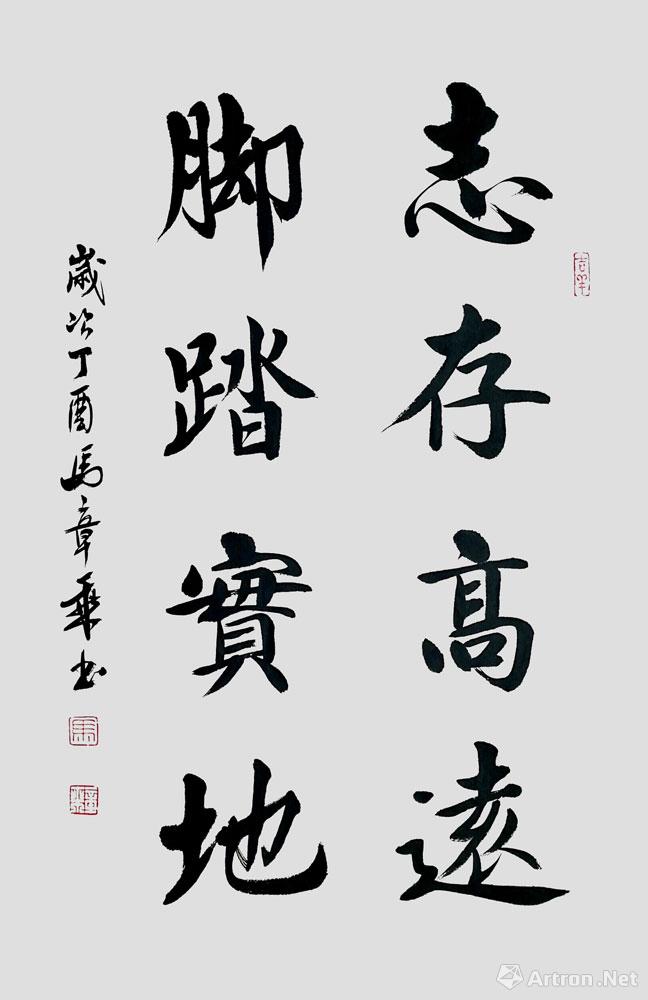 志存高遠
脚踏實地
歲次丁酉馬章乘书
Artron.Net